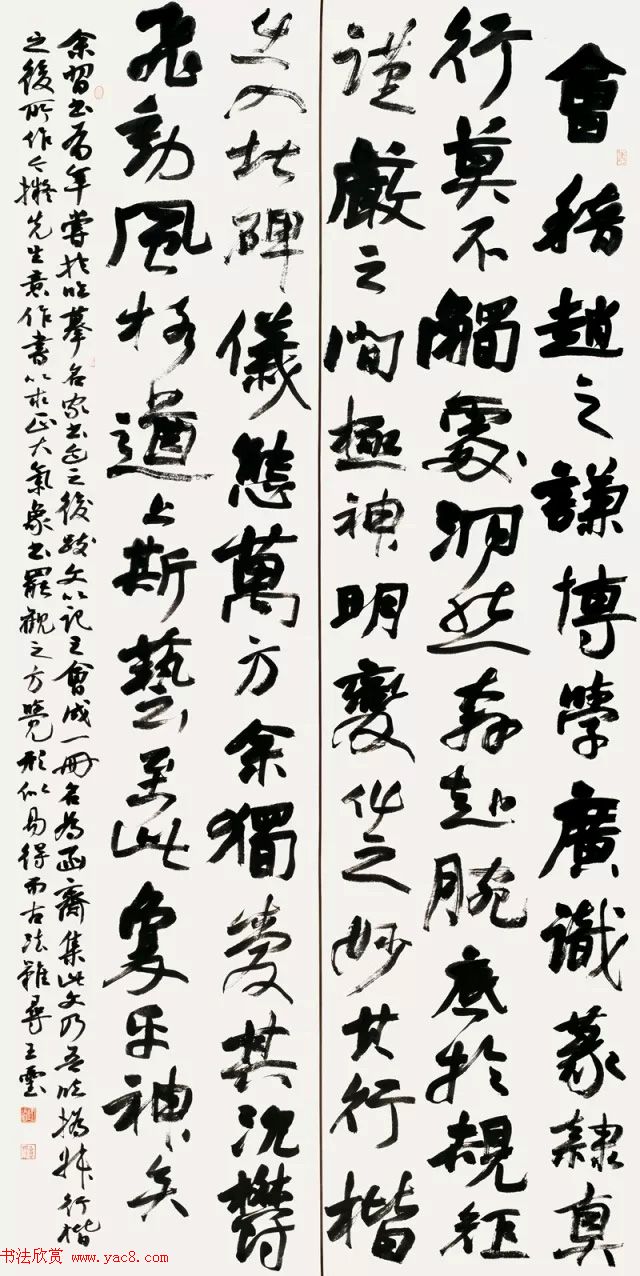 會稽趙之謙博學廣識篆隸真
行莫不觸處洞然奔赴腕底於規矩
謹嚴之間極神明變化之妙其行楷
出入北碑儀態萬方余獨愛其沉鬱
飛動風格遒上斯藝至此乎神矣
余習書有年嘗於臨摹名家書迹之後跋文以記之會成一冊名為函齋集此文乃吾臨撝叔行楷
之後所作今擬先生意作書以求正大氣象書罷觀之方覺形似易得而古法難尋王
书法欣赏 www.yac8.com